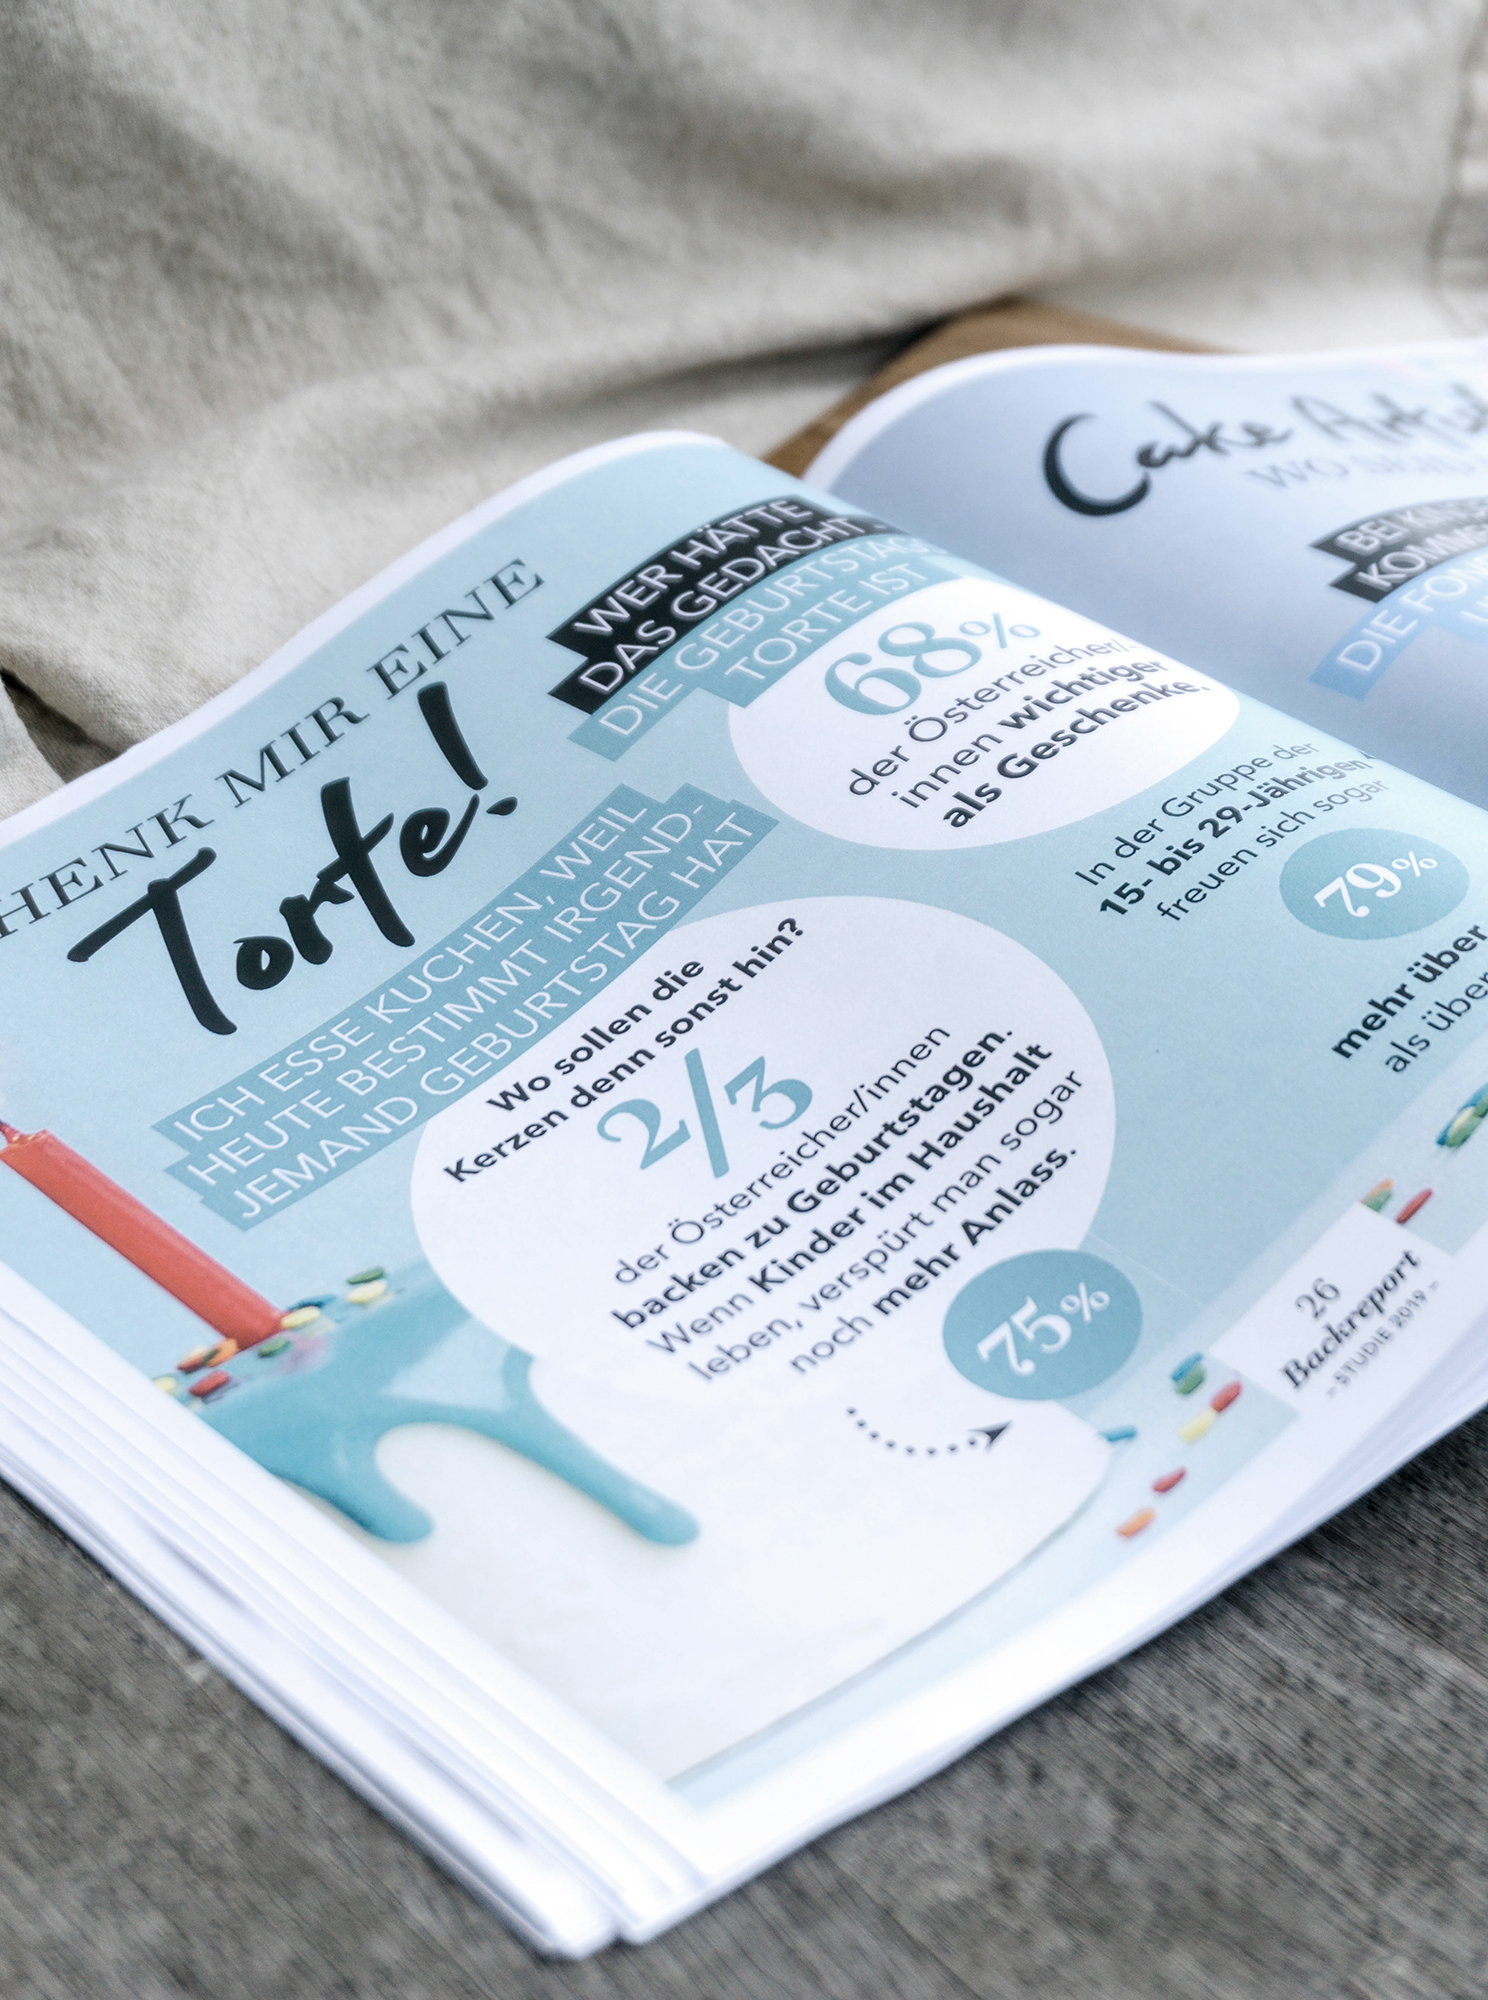 HENK MIR EINE
Torte!
ICH ESSE KUCHEN, WEIL
HEUTE BESTIMMT IRGEND-
JEMAND GEBURTSTAG HAT
WER HÄTTE
DAS GEDACHT
DIE GEBURTSTAGS
TORTE IST
68%
der Österreicher/-
innen wichtiger
als Geschenke.
In der Gruppe der
15- bis 29-Jährigen
freuen sich sogar
79%
mehr über
als über
Wo sollen die
Kerzen denn sonst hin?
2/3
der Österreicher/innen
backen zu Geburtstagen.
Wenn Kinder im Haushalt
leben, verspürt man sogar
noch mehr Anlass.
75%
26
Backreport
- STUDIE 2019 -
Cake
WO
BEI KINDE
KOMME
DIE FON